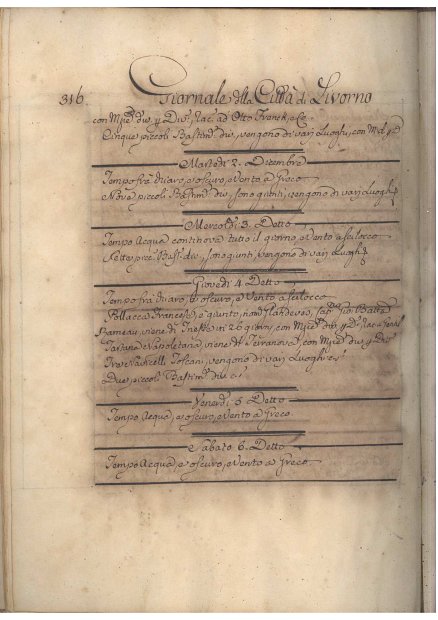 316. Giornale della Città di Livorno
con Mpie div. p Div. Rac. ad Otto Franck, e C.
Cinque piccoli Bastim. div. vengono di varj Luoghi, con
Martedì 2. Decembre
Tempo frà chiaro, e oscuro, e Vento a Greco
Nove piccoli Bastim. div. sono giunti, vengono di varj Luoghi
Mercoldì 3. Detto
Tempo Acqua continova tutto il giorno, e Vento a Scilocco
Sette picc. Bast. div. sono giunti, vengono di varj Luoghi
Giovedì 4. Detto
Tempo frà chiaro, e oscuro, e Vento a Scilocco
Pollacca Francese è giunto, nom. Cap. Gio: Batta
Rameau, viene di in 26 giorni, con Mpie div. p
Tartana Napoletana viene di Terranova con Mpie div. p Div.
Tre Navicelli Toscani, vengono di varj Luoghi
Due piccoli Bastim. div.
Venerdì 5. Detto
Tempo Acqua, e oscuro, e Vento a Greco
Sabato 6. Detto
Tempo Acqua, e oscuro, e Vento a Greco